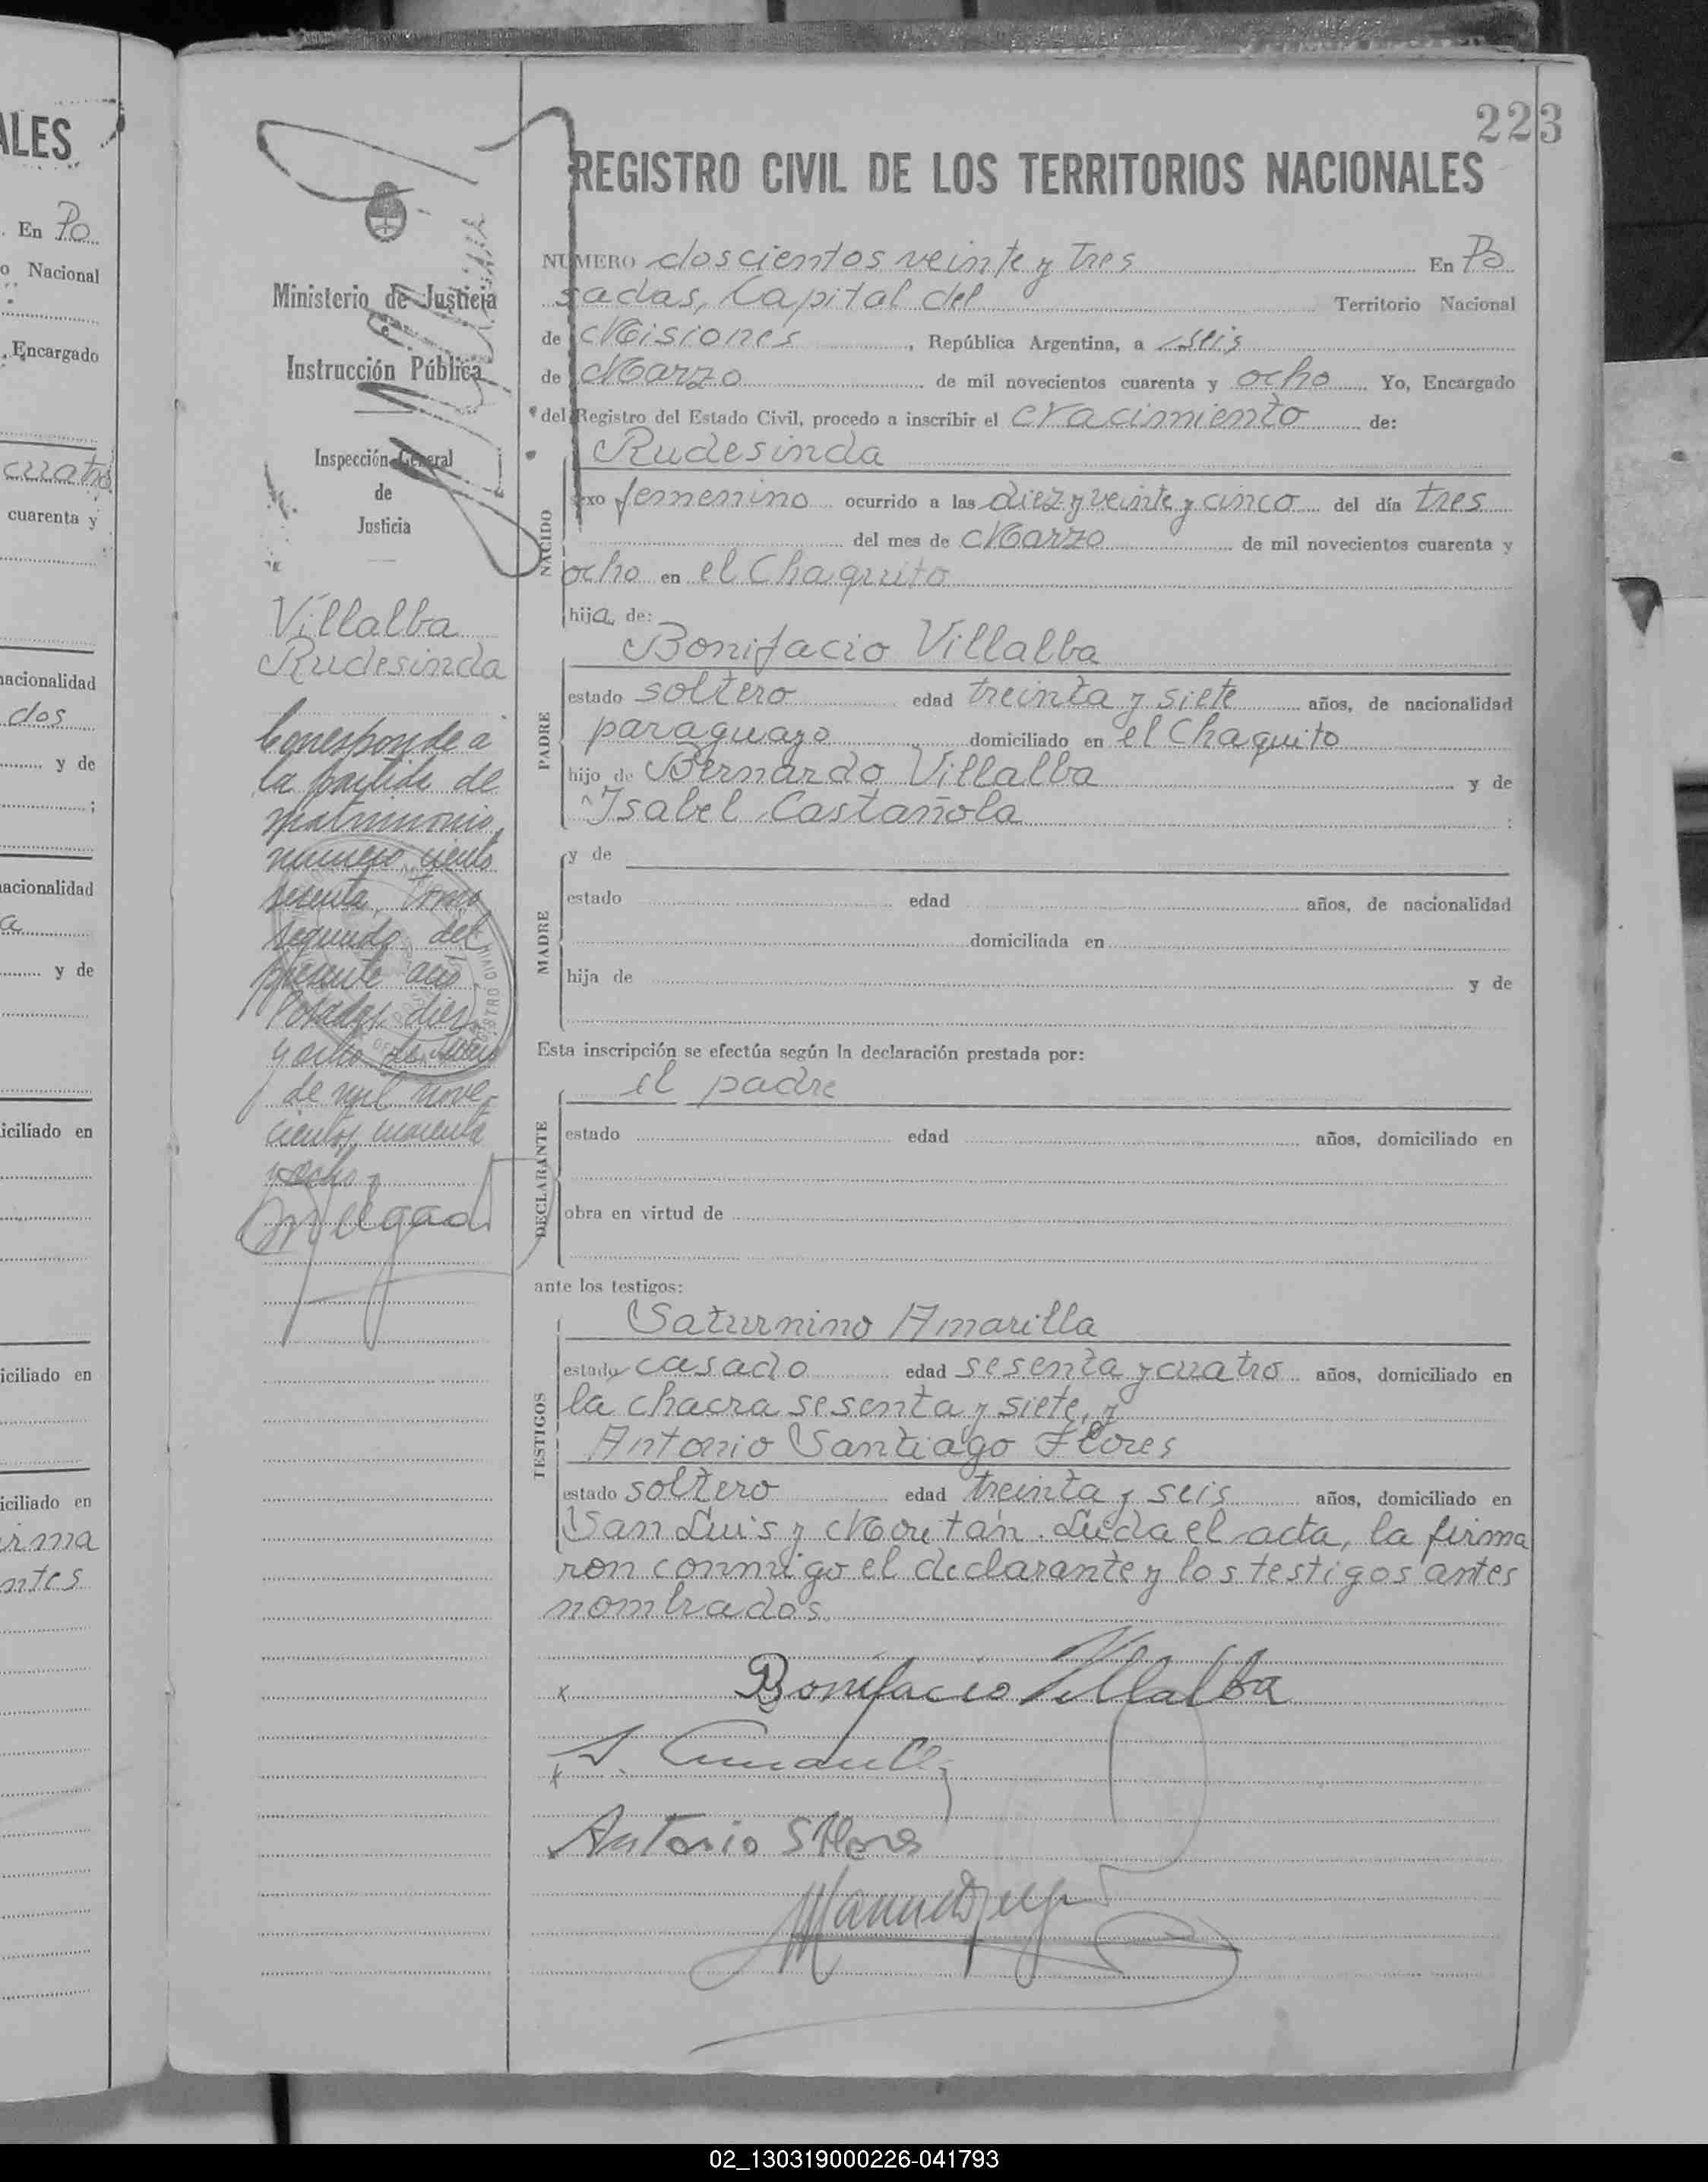 ALES
En Po
o Nacional
Encargado
cuatro
cuarenta y
nacionalidad
dos
y de
;
nacionalidad
a
y de
iciliado en
iciliado en
iciliado en
irma
ntes
223
Ministerio de Justicia
Instrucción Pública
Inspección General
de
Justicia
Villalba
Rudesinda
Corresponde a
la partida de
matrimonio
número ciento
sesenta, tomo
segundo del
presente año
Posadas, diez
y ocho de
de mil nove-
cientos cuarenta
y ocho
REGISTRO CIVIL DE LOS TERRITORIOS NACIONALES
NUMERO doscientos veinte y tres En Po
sadas, Capital del Territorio Nacional
de Misiones, República Argentina, a seis
de Marzo de mil novecientos cuarenta y ocho Yo, Encargado
del Registro del Estado Civil, procedo a inscribir el Nacimiento de:
NACIDO
Rudesinda
sexo femenino ocurrido a las diez y veinte y cinco del día tres
del mes de Marzo de mil novecientos cuarenta y
ocho en el Chaquito
hija de:
PADRE
Bonifacio Villalba
estado soltero edad treinta y siete años, de nacionalidad
paraguayo domiciliado en el Chaquito
hijo de Bernardo Villalba y de
Isabel Castañola :
MADRE
y de
estado edad años, de nacionalidad
domiciliada en
hija de y de
Esta inscripción se efectúa según la declaración prestada por:
DECLARANTE
el padre
estado edad años, domiciliado en
obra en virtud de
ante los testigos:
TESTIGOS
Saturnino Amarilla
estado casado edad sesenta y cuatro años, domiciliado en
la chacra sesenta y siete, y
Antonio Santiago Flores
estado soltero edad treinta y seis años, domiciliado en
San Luis y Moritán. Leída el acta, la firma
ron conmigo el declarante y los testigos antes
nombrados.
x Bonifacio Villalba
x
Antonio S Flores
02_130319000226-041793